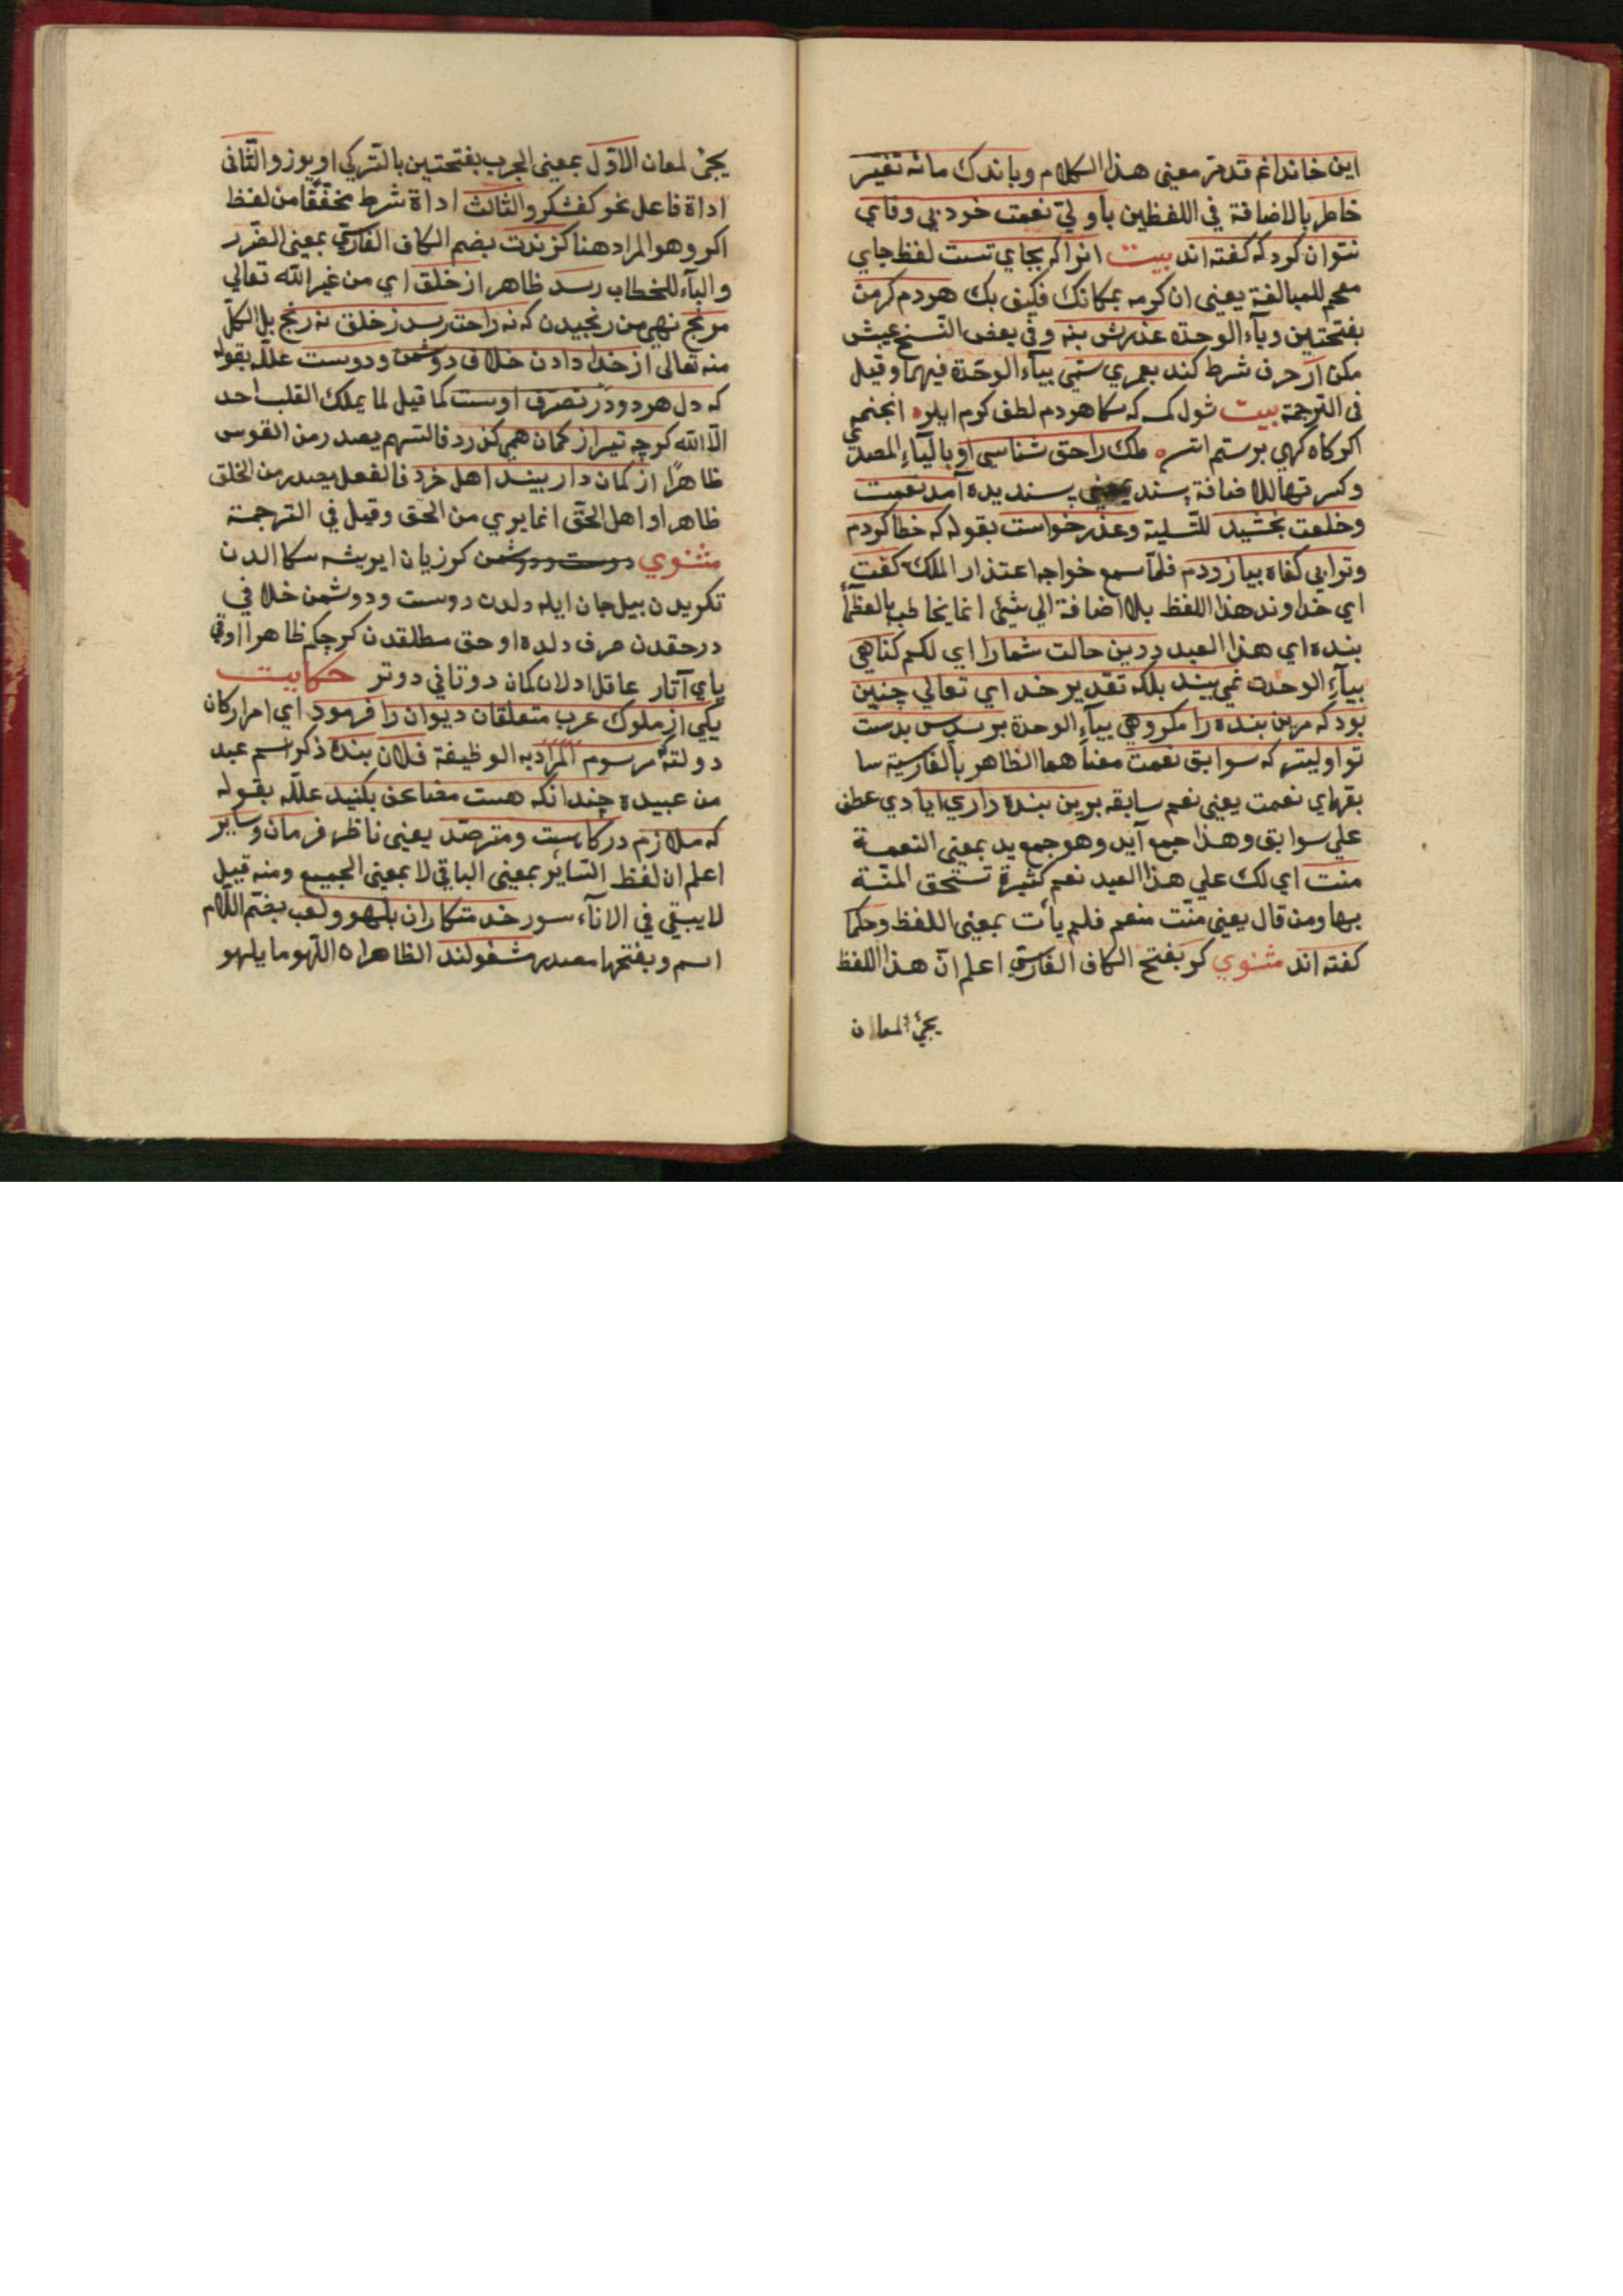 این خاندانم قدمرّ معنی هذا الکلام وباندک مانه تغیّر
خاطر بالاضافة فی اللفظین باولیّ نعمت خود بی وفایی
نتوان کرد که کفته اند بیت انرا کر بجای تست لفظ جای
مقحم للمبالغة یعنی ان کرمه بمکانک فکیف بک هردم کرمن
بفتحتین وبآء الوحدة عذرش بنه وفی بعض النسخ عیبش
مکن ار حرف شرط کند بعمری ستمی بیآء الوحدة فیهما وقیل
فی الترجمة بیت شول کمـ که سکا هردم لطف کرم ایلره انجنمه
اکر کاه کهی برستم اتسه ملک را حق شناسی او بالیآء المصدری
وکسرتها للاضافة پسند پسندیده آمد نعمت
وخلعت بخشید للتسلیة وعذر خواست بقوله که خطا کردم
وترا بی کناه بیازردم فلمّا سمع خواجه اعتذار الملک کفت
ای خداوند هذا اللفظ بلا اضافة الی شئ انما یخاطب بالعظمآء
بنده ای هذا العبد درین حالت شما را ای لکم کناهی
بیآء الوحدت نمی بیند بلکه تقدیر خدای تعالی چنین
بود که مرین بنده را مکروهی بیآء الوحدة برسد پس بدست
تو اولیتر که سوابق نعمت معناهما الظاهر بالفارسیة سا
بقهای نعمت یعنی نعم سابقه برین بنده داری ایادی عطف
علی سوابق وهذا جمع آید وهو جمع ید بمعنی النعمة
منت ای لک علی هذا العبد نعم کثیرة تستحق المنّة
بها ومن قال یعنی منّت منعم فلم یأت بمعنی اللفظ وحکما
کفته اند مثنوی کر بفتح الکاف الفارسیّ اعلم انّ هذا اللفظ
یجئ لمعان
یجئ لمعان الاوّل بمعنی الجرب بفتحتین بالترکی اویوز والثّانی
اداة فاعل نحو کفشکر والثالث اداة شرط مخفّفا من لفظ
اکر وهو المراد هنا کزندت بضم الکاف الفارسی بمعنی الضّرر
والتآء للخطاب رسد ظاهر از خلق ای من غیر الله تعالی
مرنج نهی من رنجیدن که نه راحت رسد ز خلق نه رنج بل الکلّ
منه تعالی از خدا دادن خلاف دوشمن ودوست علّله بقوله
که دل هر دو در تصرّف اوست کما قیل لما یملک القلب احد
الّا الله کرچه تیر از کمان همی کذرد فالسّهم یصدر من القوس
ظاهرًا از کمان دار بیند اهل خرد فالفعل یصدر من الخلق
ظاهرا واهل الحقّ انما یری من الحق وقیل فی الترجمة
مثنوی دوست ودوشمن کر زیان ایریشه سکا الدن
تکریدن بیل جان ایله دلدن دوست ودوشمن خلافی
در حقدن صرف دلده اوحق مطلقدن کرچکم ظاهرا اوقی
یای آتار عاقل اولان کمان دوتانی دوتر حکایت
یکی از ملوک عرب متعلقان دیوان را فرمود ای امر ارکان
دولته مرسوم المراد به الوظیفة فلان بنده ذکر اسم عبد
من عبیده چندانکه هست مضاعف بکنید علّله بقوله
که ملازم درکاهست ومترصّد یعنی ناظر فرمان وسایر
اعلم ان لفظ السّائر بمعنی الباقی لا بمعنی الجمیع ومنه قیل
لا یبقی فی الانآء سور خدمتکاران بلهو ولعب بضمّ اللّام
اسم وبفتحها مصدر مشغولند الظاهر ان اللّهو ما یلهو